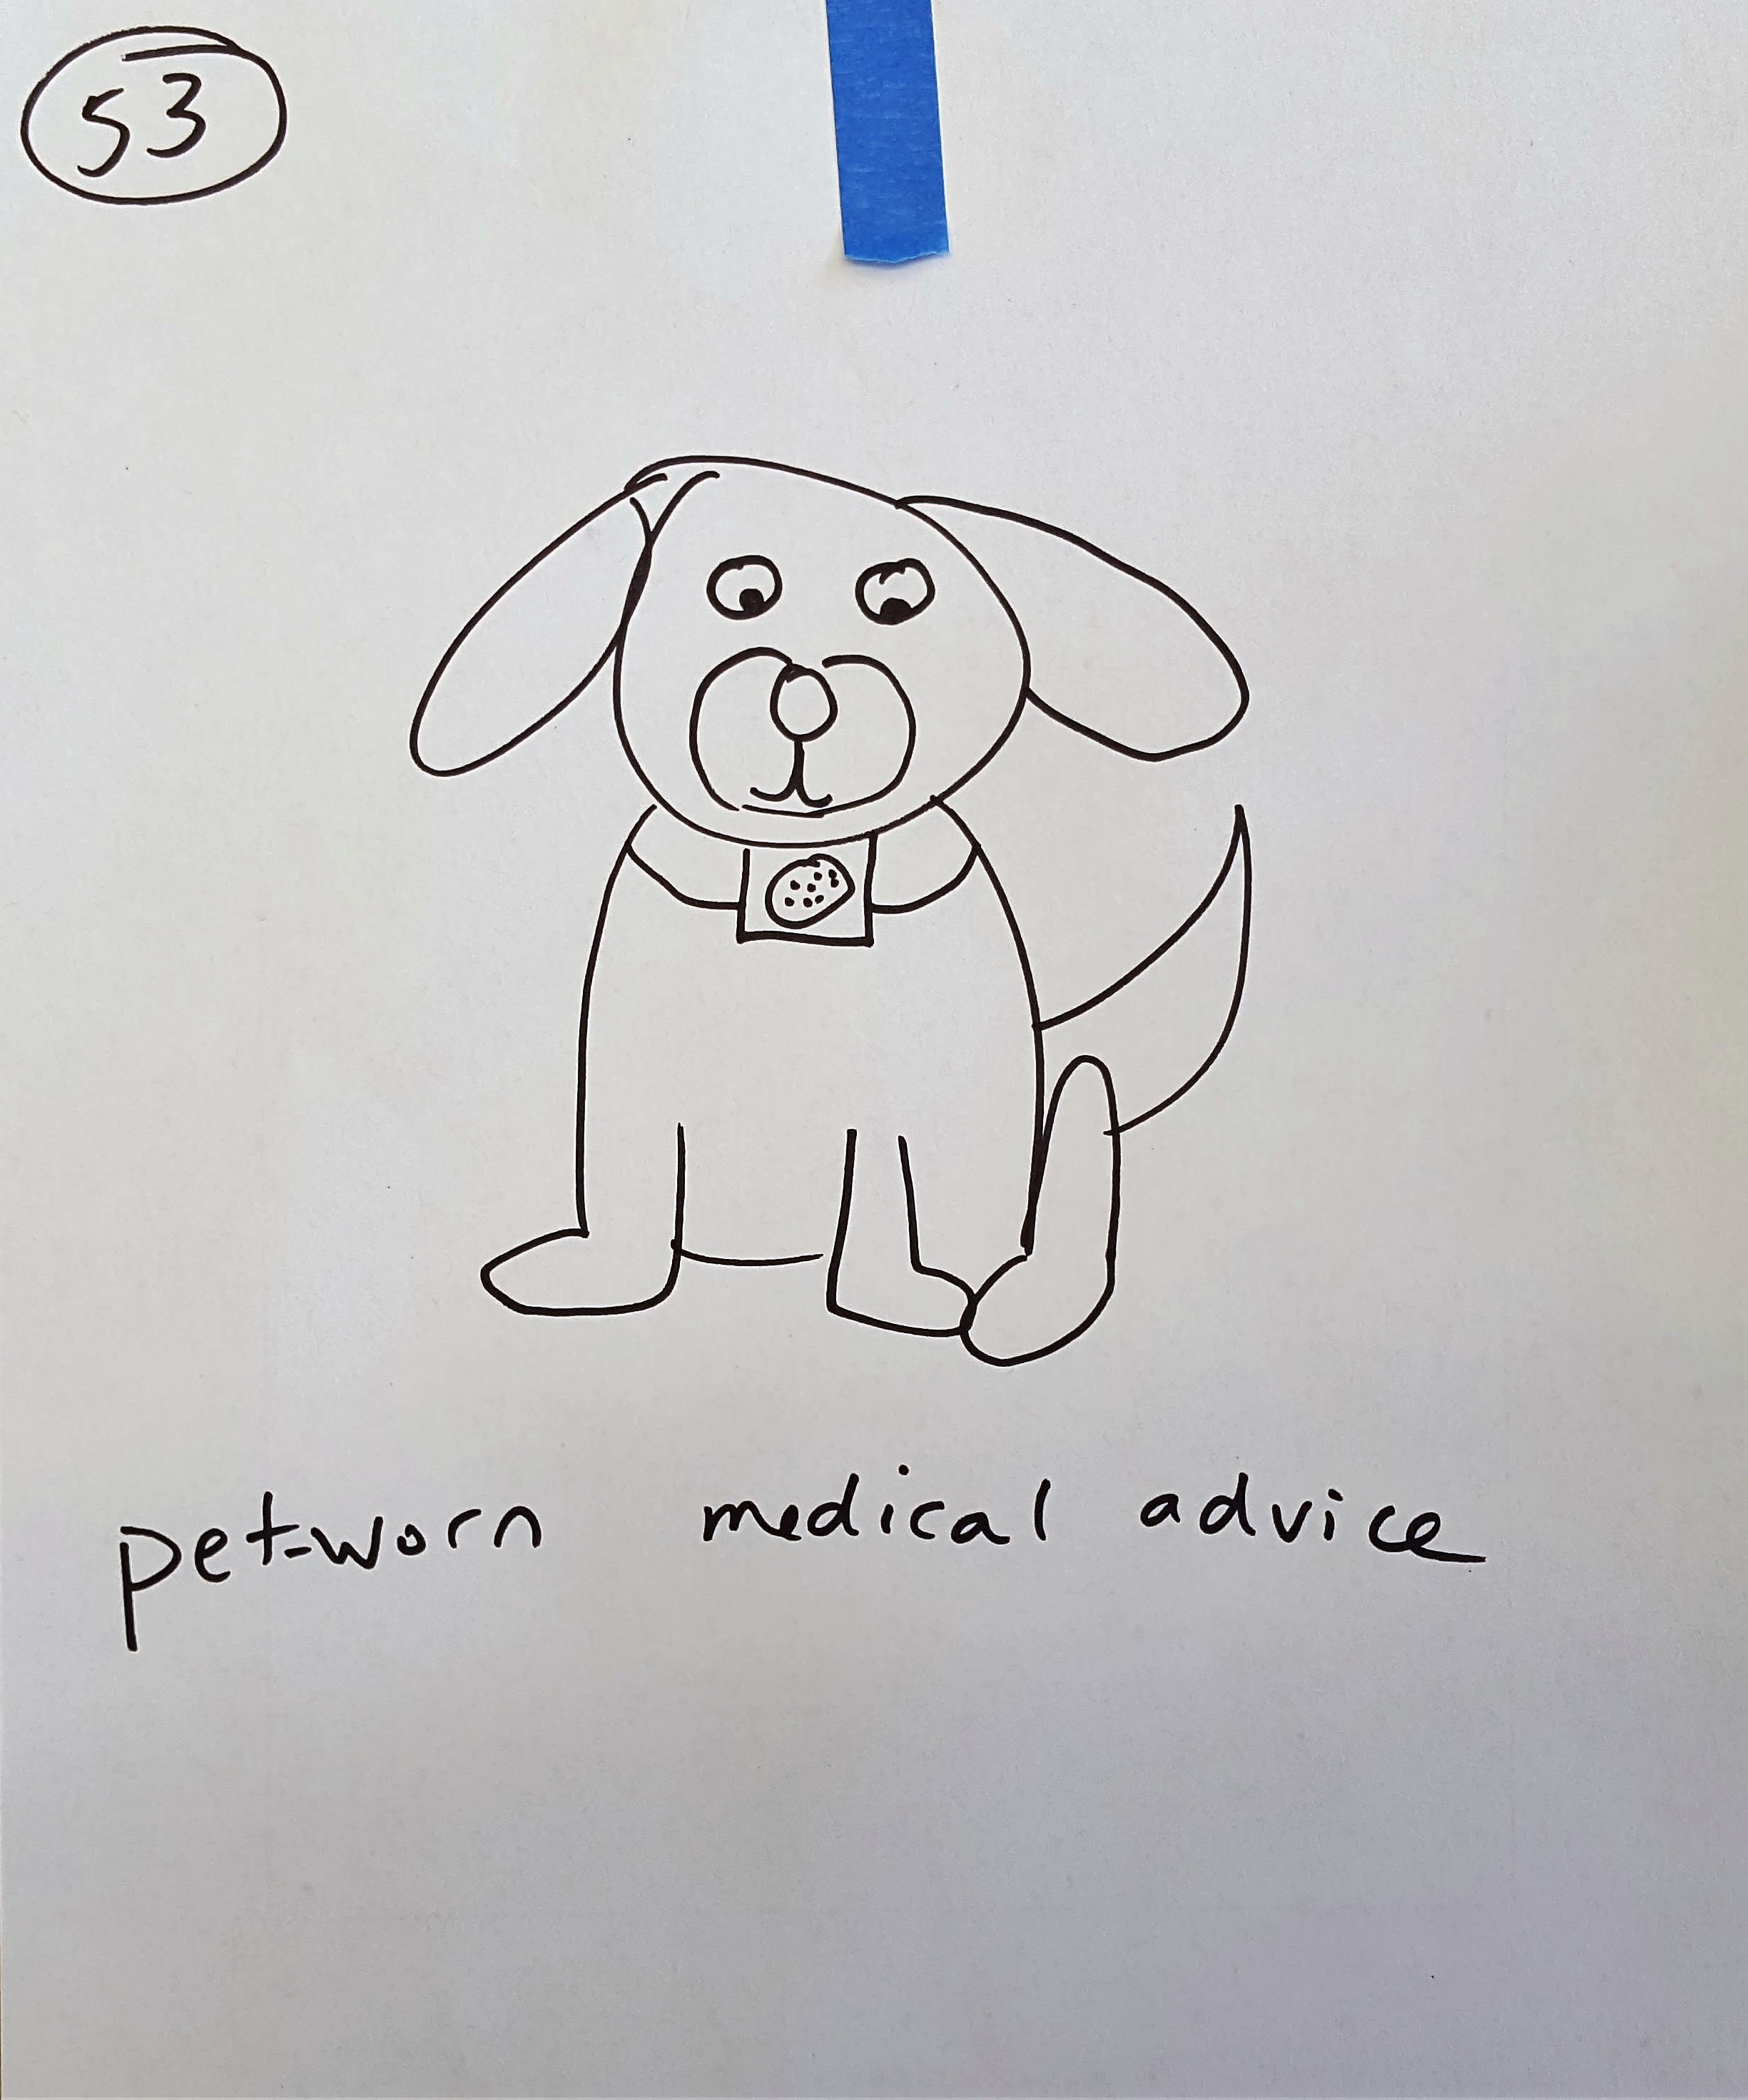 53
pet-worn medical advice